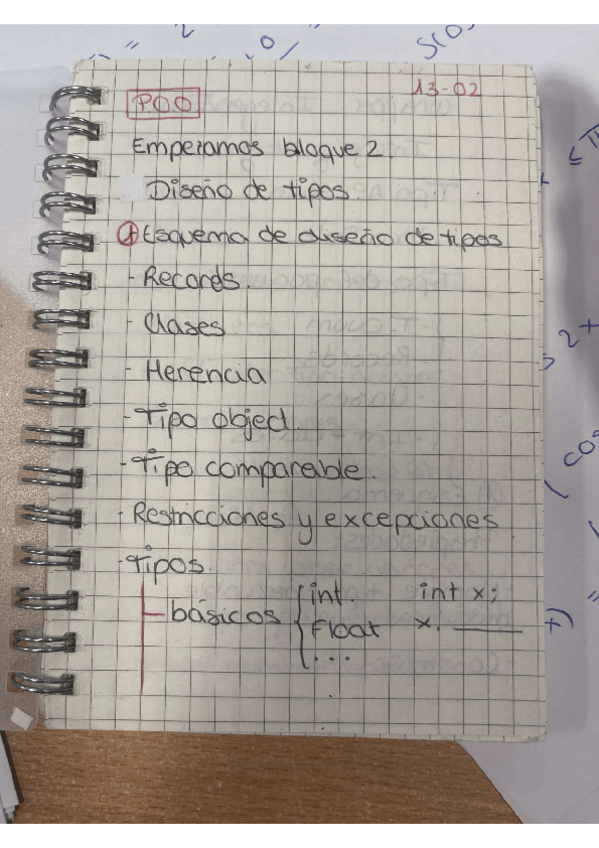 POO 13-02
Empezamos bloque 2.
Diseño de tipos
Esquema de diseño de tipos
- Records.
- Clases
- Herencia
- Tipo objed.
- Tipo comparable.
- Restricciones y excepciones
- Tipos.
básicos { int. int x;
float x.
...